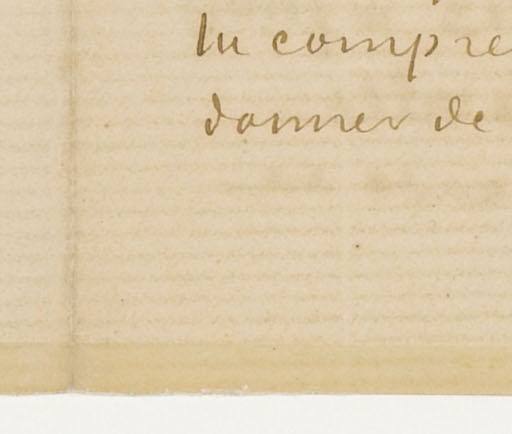 tu compre
donner de